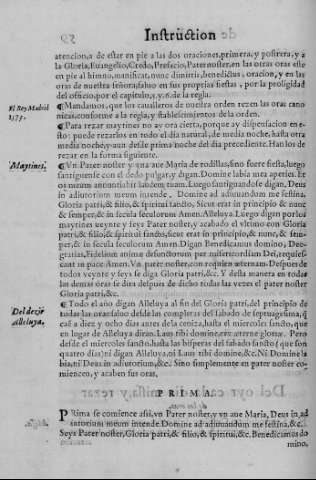 Instruction
atencion, a de estar en pie a las dos oraciones, primera, y postrera, y a
la Gloria, Euangelio, Credo, Prefacio, Pater noster, en las otras oras este
en pie al himno, manificat, nunc dimittis, benedictus, oracion, y en las
oras de nuestra señora, saluo en sus proprias fiestas, por la proligidad
del officio, por el capitulo, 2. y. 6. de la regla.
El Rey Madrid
1573.
¶Mandamos, que los caualleros de nuestra orden rezen las oras cano
nicas, conforme a la regla, y stablecimientos de la orden.
¶Para rezar maytines no ay ora cierta, porque ay dispensacion en
esto: puede rezarlos en todo el dia natural, de media noche, hasta otra
media noche, y aun desde prima noche del dia precediente. Han los de
rezar en la forma siguiente.
Maytines.
¶Vn Pater noster y vna aue Maria de rodillas, sino fuere fiesta, luego
santiguense con el dedo pulgar, y digan. Domine labia mea aperies. Et
os meum annuntiabit laudem tuam. Luego santiguandose digan, Deus
in adiutorium meum intende, Domine ad adiuuandum me festina,
Gloria patri, & filio, & spiritui sancto, Sicut erat in principio & nunc
& semper, & in secula seculorum Amen. Alleluya. Luego digan por los
maytines veynte y seys Pater noster, y acabado el vltimo con Gloria
patri, & filio, & spiritui sancto, sicut erat in principio, & nunc, & sem-
per, & in secula seculorum Amen. Digan Benedicamus domino, Deo-
gratias, Fidelium anime defunctorum per misericordiam Dei, requies-
cant in pace Amen. Vn pater noster, con requien eternam. Despues de
todos veynte y seys se diga Gloria patri, &c. Y desta manera en todas
las demas oras se dira despues de dicho todas las vezes el pater noster
Gloria patri, &c.
Del dezir
alleluya.
¶Todo el año digan Alleluya al fin del Gloria patri, del principio de
todas las oras, saluo desde las completas del sabado de septuagesima, q̃
caé a diez y ocho dias antes de la ceniza, hasta el miercoles sancto, que
en lugar de Alleluya diran. Laus tibi domine, rex æterne gloriæ. Pero
desde el miercoles sancto, hasta las bisperas del sabado sancto (que son
quatro dias) ni digan Alleluya, ni Laus tibi domine, &c. Ni Domine la
bia, ni Deus in adiutorium, &c. Sino simplemente en pater noster co-
miencen, y acaben sus oras.
PRIMA.
PRima se comience assi, vn Pater noster, y vn aue Maria, Deus in ad
iutorium meum intende. Domine ad adiuuandum me festina, &c.
Seys Pater noster, Gloria patri, & filio, & spiritui, &c. Benedicamus do
mino,